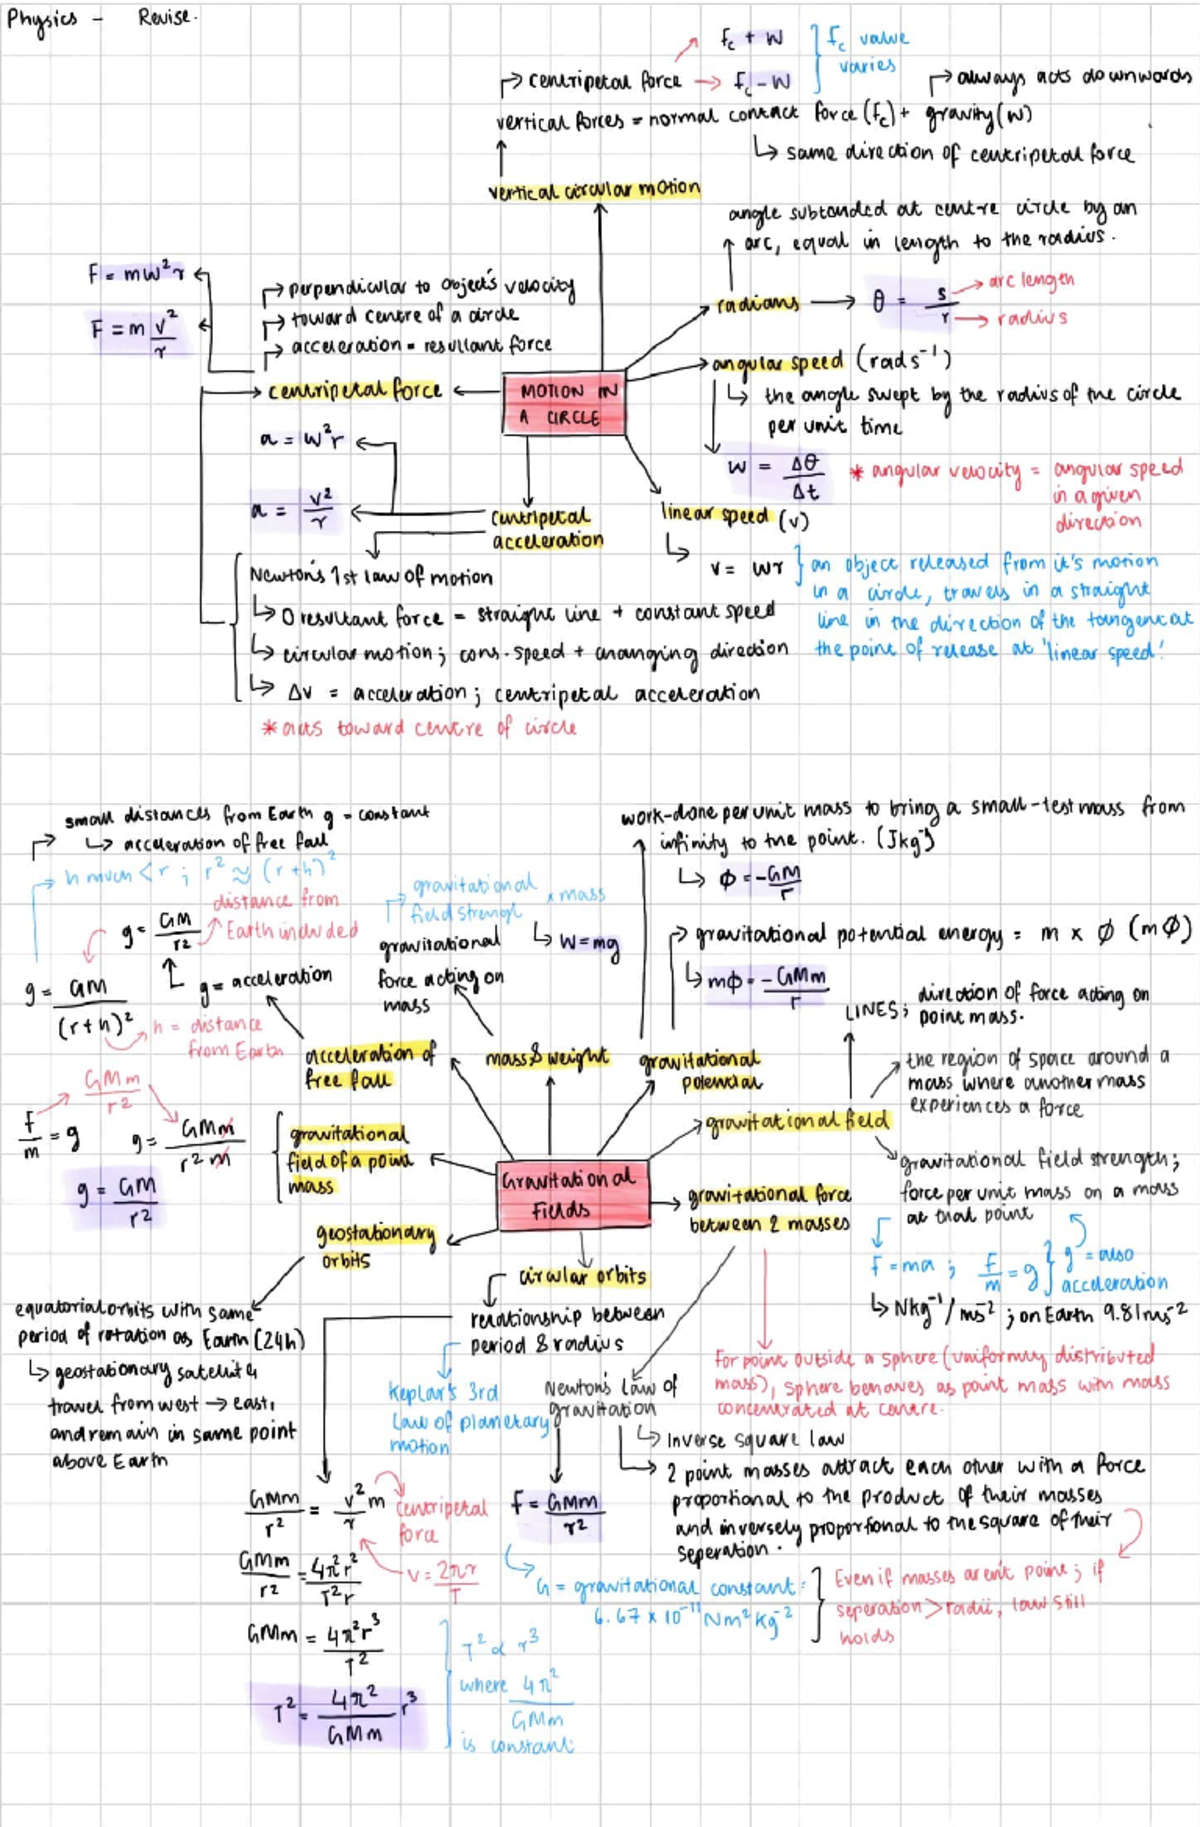 Physics - Revise.
fc + W
fc - W
fc value
varies
centripetal force
always acts downwards
vertical forces = normal contact force (fc) + gravity (W)
same direction of centripetal force
vertical circular motion
angle subtended at centre circle by an
arc, equal in length to the radius.
radians
θ = s/r
arc length
radius
F = mω²r
F = m v²/r
perpendicular to object's velocity
toward centre of a circle
acceleration = resultant force
centripetal force
MOTION IN
A CIRCLE
angular speed (rads⁻¹)
the angle swept by the radius of the circle
per unit time
ω = Δθ/Δt
* angular velocity = angular speed
in a given
direction
a = ω²r
a = v²/r
centripetal
acceleration
linear speed (v)
v = ωr
an object released from it's motion
in a circle, travels in a straight
line in the direction of the tangent at
the point of release at 'linear speed'
Newton's 1st law of motion
0 resultant force = straight line + constant speed
circular motion; cons. speed + changing direction
Δv = acceleration; centripetal acceleration
* acts toward centre of circle
small distances from Earth g = constant
acceleration of free fall
h much < r ; r² ≈ (r+h)²
distance from
Earth included
g = GM/r²
g = acceleration
g = GM/(r+h)²
h = distance
from Earth
acceleration of
free fall
gravitational
field strengt
x mass
gravitational
force acting on
mass
W = mg
mass & weight
work-done per unit mass to bring a small-test mass from
infinity to the point. (Jkg⁻¹)
ϕ = -GM/r
gravitational potential energy = m x ϕ (mϕ)
mϕ = -GMm/r
gravitational
potential
LINES; direction of force acting on
point mass.
the region of space around a
mass where another mass
experiences a force
gravitational field
gravitational field strength;
force per unit mass on a mass
at that point
F = ma ; F/m = g
g = also
acceleration
Nkg⁻¹/ms⁻² ; on Earth 9.81ms⁻²
GMm/r²
F/m = g
g = GMm/r²m
g = GM/r²
gravitational
field of a point
mass
Gravitational
Fields
gravitational force
between 2 masses
geostationary
orbits
circular orbits
equatorial orbits with same
period of rotation as Earth (24h)
geostationary satellites
travel from west → east,
and remain in same point
above Earth
relationship between
period & radius
Keplar's 3rd
Law of planetary
motion
For point outside a sphere (uniformly distributed
mass), sphere behaves as point mass with mass
concentrated at centre.
Newton's Law of
gravitation
Inverse square law
2 point masses attract each other with a force
proportional to the product of their masses
and inversely proportional to the square of their
seperation.
F = GMm/r²
G = gravitational constant:
6.67 x 10⁻¹¹ Nm²kg⁻²
Even if masses aren't point; if
seperation > radii, law still
holds
GMm/r² = v²/r m
centripetal
force
GMm/r² = 4π²r²/T²r
v = 2πr/T
GMm = 4π²r³/T²
T² = 4π²/GMm r³
T² ∝ r³
where 4π²/GMm
is constant